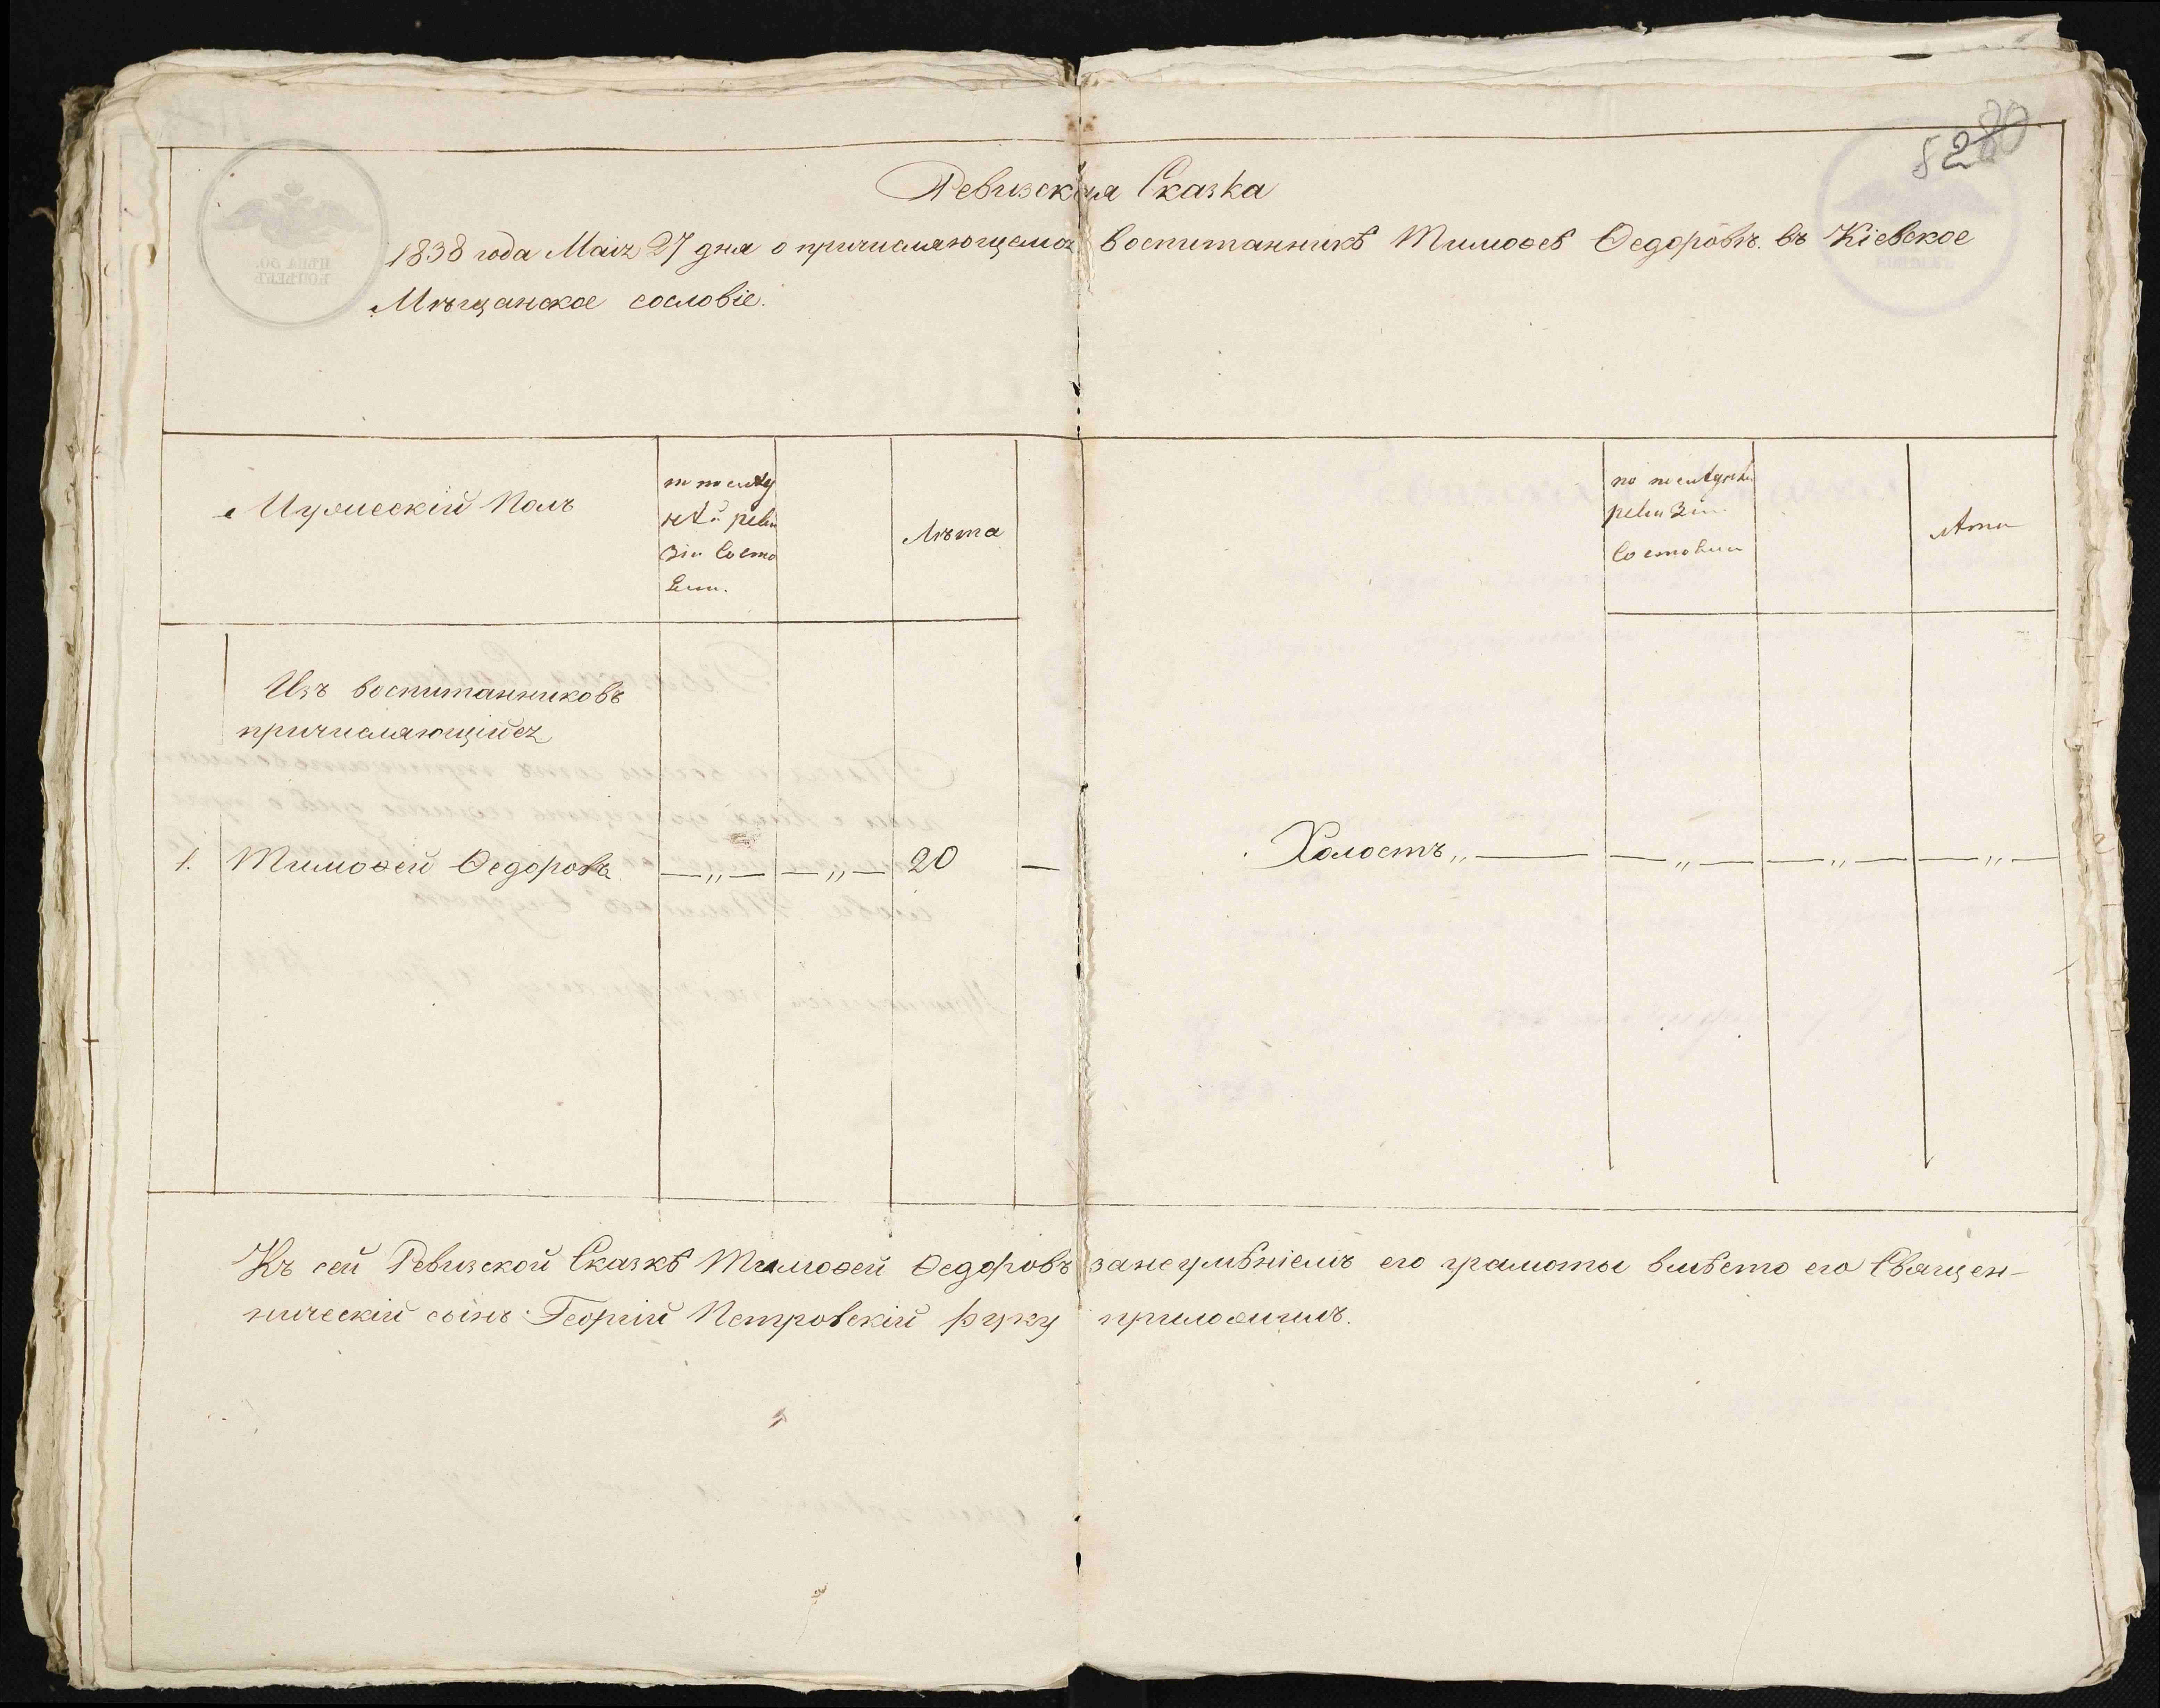 80
52
Ревизская Сказка
1838 года Маія 27 дня о причисляющемся воспитанникѣ Тимоѳеѣ Ѳедоровѣ въ Кіевское
Мѣщанское сословіе.
Мужескій Полъ
по послѣд
нѣй реви
зіи Состо
яли.
Лѣта
по послѣдней
ревизіи
Состояли
Лѣта
Изъ воспитанниковъ
причисляющійся
1. Тимоѳей Ѳедоровъ —„— —„— 20 — Холостъ„ — —„— —„— —„—
Къ сей Ревизской Сказкѣ Тимоѳей Ѳедоровъ занеумѣніемъ его грамоты вмѣсто его Священ-
ническій сынъ Георгій Петровскій руку приложилъ.